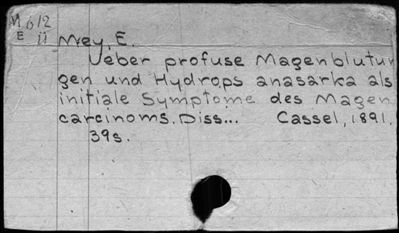 M 6/2
E 11
Mey, E.
Ueber profuse Magenblutun
gen und Hydrops anasarka als
initiale Symptome des Magen
carcinoms. Diss... Cassel, 1891.
39s.